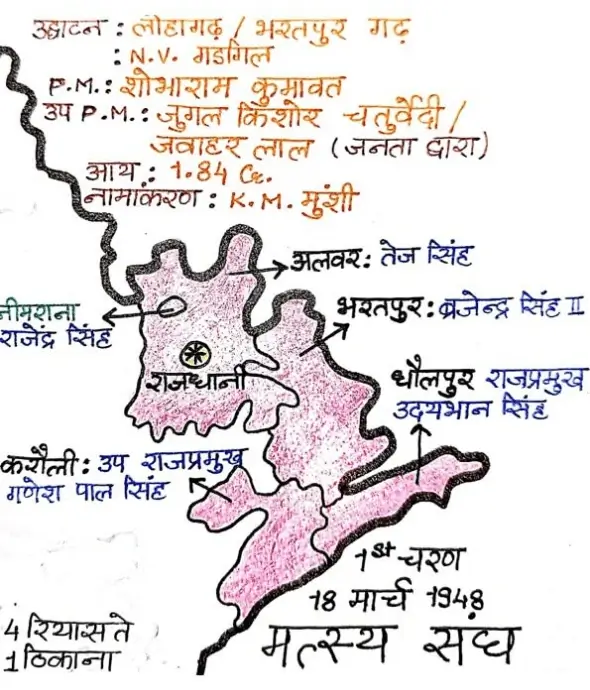 उद्घाटन : लौहागढ़ / भरतपुर गढ़
: N.V. गडगिल
P.M. : शोभाराम कुमावत
उप P.M. : जुगल किशोर चतुर्वेदी /
जवाहर लाल (जनता द्वारा)
आय : 1.84 Cr.
नामांकरण : K.M. मुंशी
अलवर : तेज सिंह
नीमराना
राजेंद्र सिंह
भरतपुर : ब्रजेन्द्र सिंह II
राजधानी
धौलपुर राजप्रमुख
उदयभान सिंह
करौली : उप राजप्रमुख
गणेश पाल सिंह
1st चरण
18 मार्च 1948
मत्स्य संघ
4 रियासते
1 ठिकाना